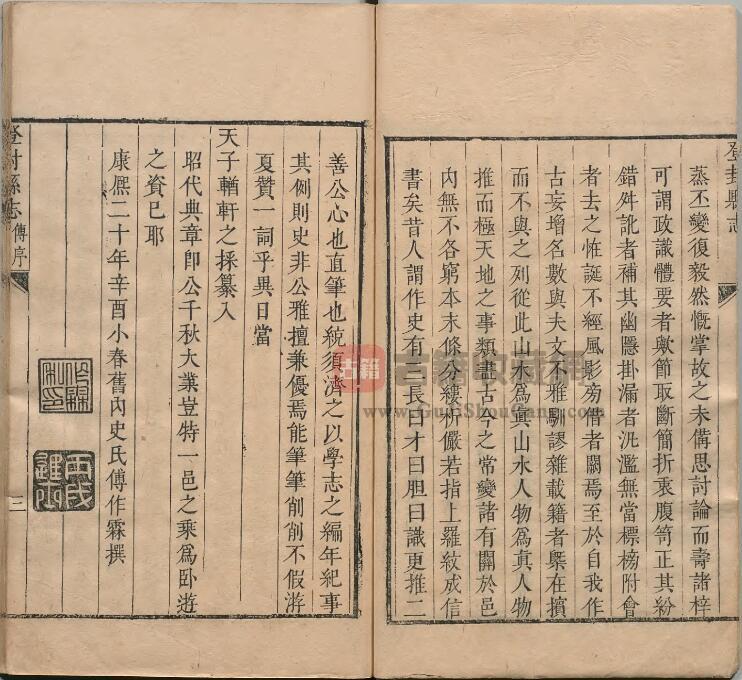 登封縣志
蒸丕變復毅然慨掌故之未備思討論而壽諸梓
可謂政識體要者歟節取斷簡折衷腹笥正其紛
錯舛訛者補其幽隱掛漏者汎濫無當標榜附會
者去之恠誕不經風影旁借者闕焉至於自我作
古妄增名數與夫文不雅馴謬雜載籍者槩在擯
而不與之列從此山水為真山水人物為真人物
推而極天地之事類盡古今之常變諸有關於邑
內無不各窮本末條分縷析儼若指上羅紋成信
書矣昔人謂作史有三長曰才曰胆曰識更推二
善公心也直筆也統須濟之以學志之編年紀事
其例則史非公雅擅兼優焉能筆筆削削不假游
夏贊一詞乎異日當
天子輶軒之採纂入
昭代典章即公千秋大業豈特一邑之乘為臥遊
之資已耶
康熙二十年辛酉小春舊內史氏傅作霖撰
登封縣志
傅序
三
古籍
古籍收藏網
www.GuJiShouCang.com